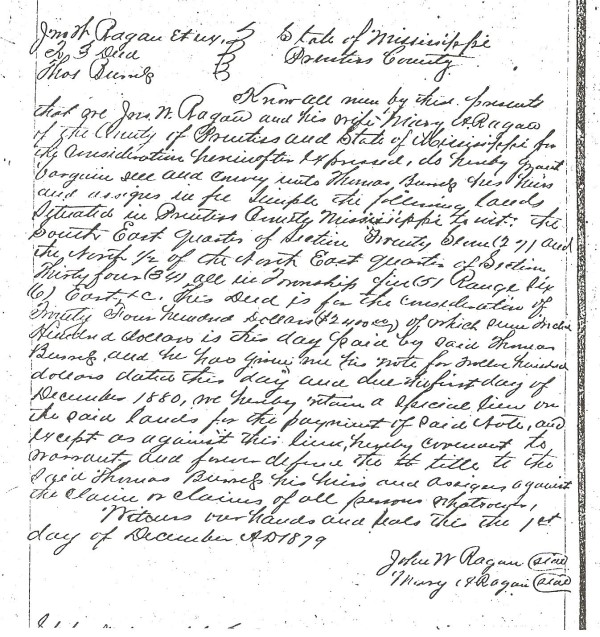 Jno W. Ragan et ux. } State of Mississippi
To } Deed } Prentiss County
Thos Burress }
Know all men by these presents
that we Jno. W. Ragan and his wife Mary A Ragan
of the County of Prentiss and State of Mississippi for
the Consideration hereinafter Expressed, do hereby grant
bargain sell and convey unto Thomas Burress his heirs
and assigns in fee simple the following lands
situated in Prentiss County Mississippi to wit: the
South East quarter of Section Twenty Seven (27) and
the North 1/2 of the North East quarter of Section
Thirty four (34) all in Township five (5) Range Six
(6) East, &c. This Deed is for the consideration of
Twenty Four hundred Dollars ($2400 00) of which sum Twelve
Hundred dollars is this day paid by said Thomas
Burress and he has given me his note for Twelve hundred
dollars dated this day and due the first day of
December 1880, we hereby retain a special lien on
the said lands for the payment of said Note, and
Except as against this lien, hereby covenant to
warrant and forever defend the title to the
said Thomas Burress his heirs and assigns against
the claim or claims of all persons whatsoever,
Witness our hands and seals this the 1st
day of December AD 1879
John W Ragan (seal)
Mary A Ragan (seal)